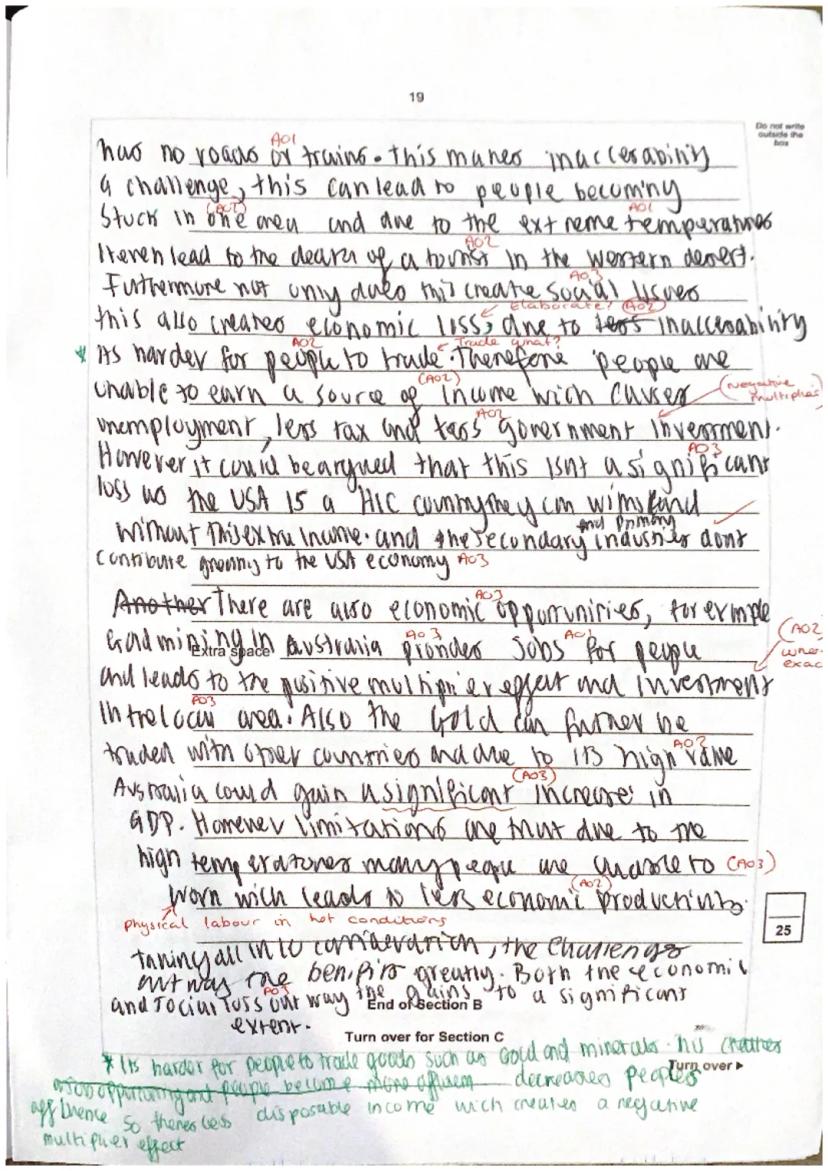 19
Do not write
outside the
box
has no roads or trains. this makes inaccesability
AO1
a challenge, this can lead to people becoming
stuck in one area and due to the extreme temperatures
(AO2) AO1
it even lead to the death of a tourist in the western desert.
AO2
Futhermore not only does this create social issues
AO3
this also creates economic loss, due to less inaccesability
Elaborate? (AO2)
* its harder for people to trade. Therefore people are
AO2 Trade what?
unable to earn a source of income wich causes
(AO2) (negative multiplier)
unemployment, less tax and less government investment.
AO2
However it could be argued that this isnt a significant
AO3
loss as the USA is a HIC country they can withstand
without this extra income. and the secondary and primary industries dont
contribute greatly to the USA economy AO3
Another There are also economic opportunities, for example
AO3
Extra space
Gold mining in Australia provides jobs for people
AO3 AO1 (AO2
and leads to the positive multiplier effect and investment
in the local area. Also the Gold can further be
AO3
traded with other countries and due to its high value
AO2
Australia could gain a significant increase in
(AO3)
GDP. However limitations are that due to the
high temperatures many people are unable to (AO3)
work wich leads to less economic productivity.
(AO2)
physical labour in hot conditions
25
taking all in to consideration, the challenges
out way the benifits greatly. Both the economic
and social loss out way the gains to a significant
AO3
End of Section B
extent.
Turn over for Section C
Turn over ►
* Its harder for people to trade goods such as Gold and minerals. this creates
people become more affluent decreases peoples
affluence so theres less disposable income wich creates a negative
multiplier effect